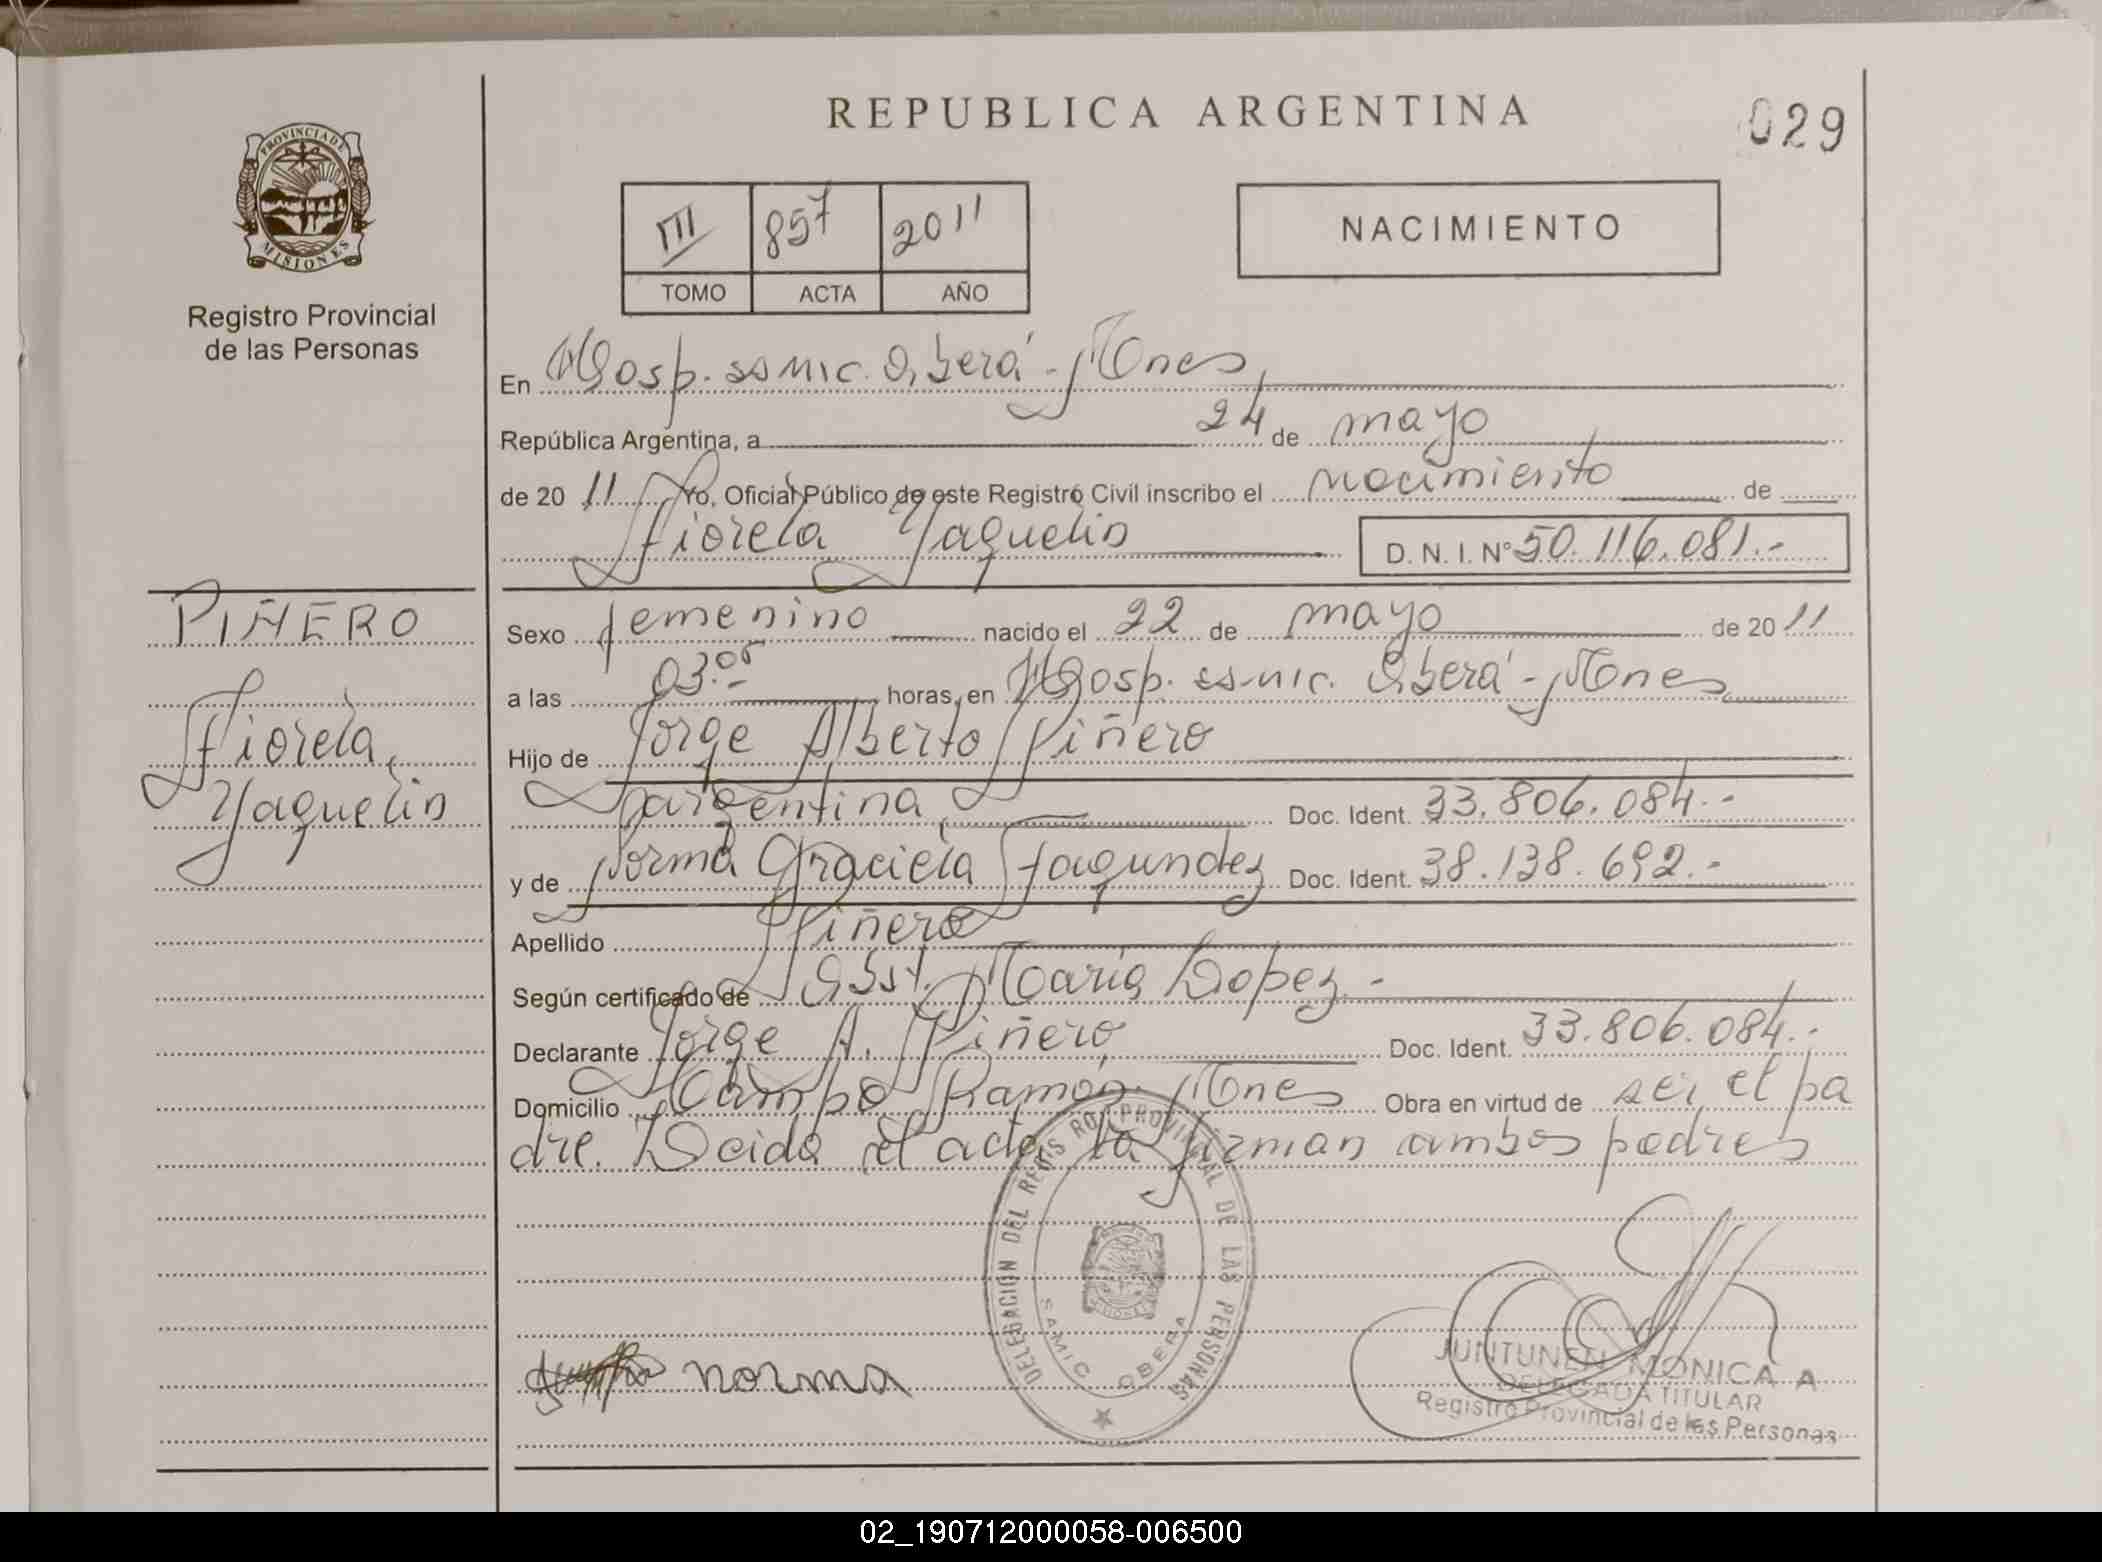 REPUBLICA ARGENTINA
029
PROVINCIA DE
MISIONES
Registro Provincial
de las Personas
III 857 2011
TOMO ACTA AÑO
NACIMIENTO
En Hosp. ssmic. Oberá - Mnes,
República Argentina, a 24 de mayo
de 20 11 Yo, Oficial Público de este Registro Civil inscribo el nacimiento de
Fiorela Yaquelin D. N. I. Nº 50.116.081.-
PIÑERO
Fiorela
Yaquelin
Sexo femenino nacido el 22 de mayo de 20 11
a las 03:05 horas, en Hosp. ssmic. Oberá - Mnes
Hijo de Jorge Alberto Piñero
argentina, Doc. Ident. 33.806.084.-
y de Norma Graciela Fagundez Doc. Ident. 38.138.692.-
Apellido Piñero
Según certificado de Obst. Maria Lopez.-
Declarante Jorge A. Piñero Doc. Ident. 33.806.084.-
Domicilio Campo Ramón, Mnes Obra en virtud de ser el pa
dre. Leida el acta la firman ambos padres
DELEGACION DEL REGISTRO PROVINCIAL DE LAS PERSONAS
SAMIC OBERA
norma
JUNTUNEN MONICA A
DELEGADA TITULAR
Registro Provincial de las Personas
02_190712000058-006500